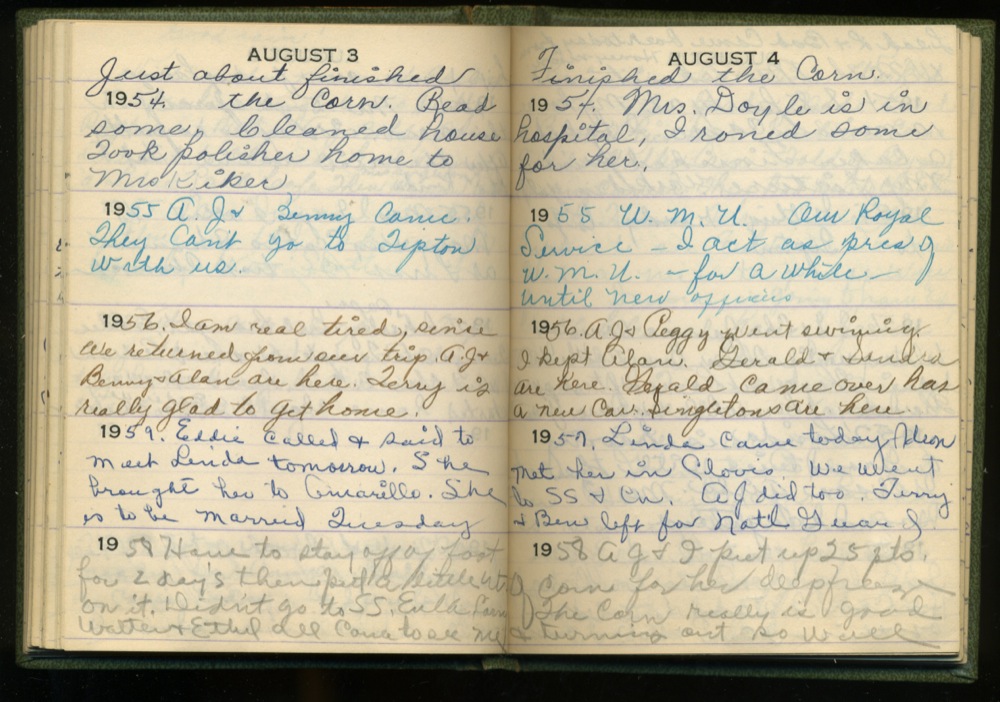 AUGUST 3
Just about finished
1954. the Corn. Read
some, Cleaned house
Took polisher home to
Mrs Kiker
1955 A.J + Benny Came.
They Can't go to Tipton
with us.
1956. I am real tired, since
we returned from our trip. A.J +
Benny + Alan are here. Terry is
really glad to get home.
1957. Eddie called + said to
meet Linda tomorrow. She
brought her to Amarillo. She
is to be married Tuesday
1958 Have to stay off of foot
for 2 day's then put a little wt
on it. Didn't go to SS. Eula
Walter + Ethel all Came to see me
AUGUST 4
Finished the Corn.
1954. Mrs. Doyle is in
hospital, I roned some
for her.
1955 W. M. U. Our Royal
Service - I act as pres of
W. M. U. - for a while -
until new officers
1956. A J + Peggy went swiming.
I kept Alan. Gerald +
are here. Gerald came over has
a new Car. Singletons are here.
1957. Linda Came today
met her in Clovis We went
to SS + Ch. A J did too. Terry
+ Ben left for Natl Guard
1958 A J + I put up 25 pts.
of Corn for her deepfreeze
The Corn really is good
+ turning out so well